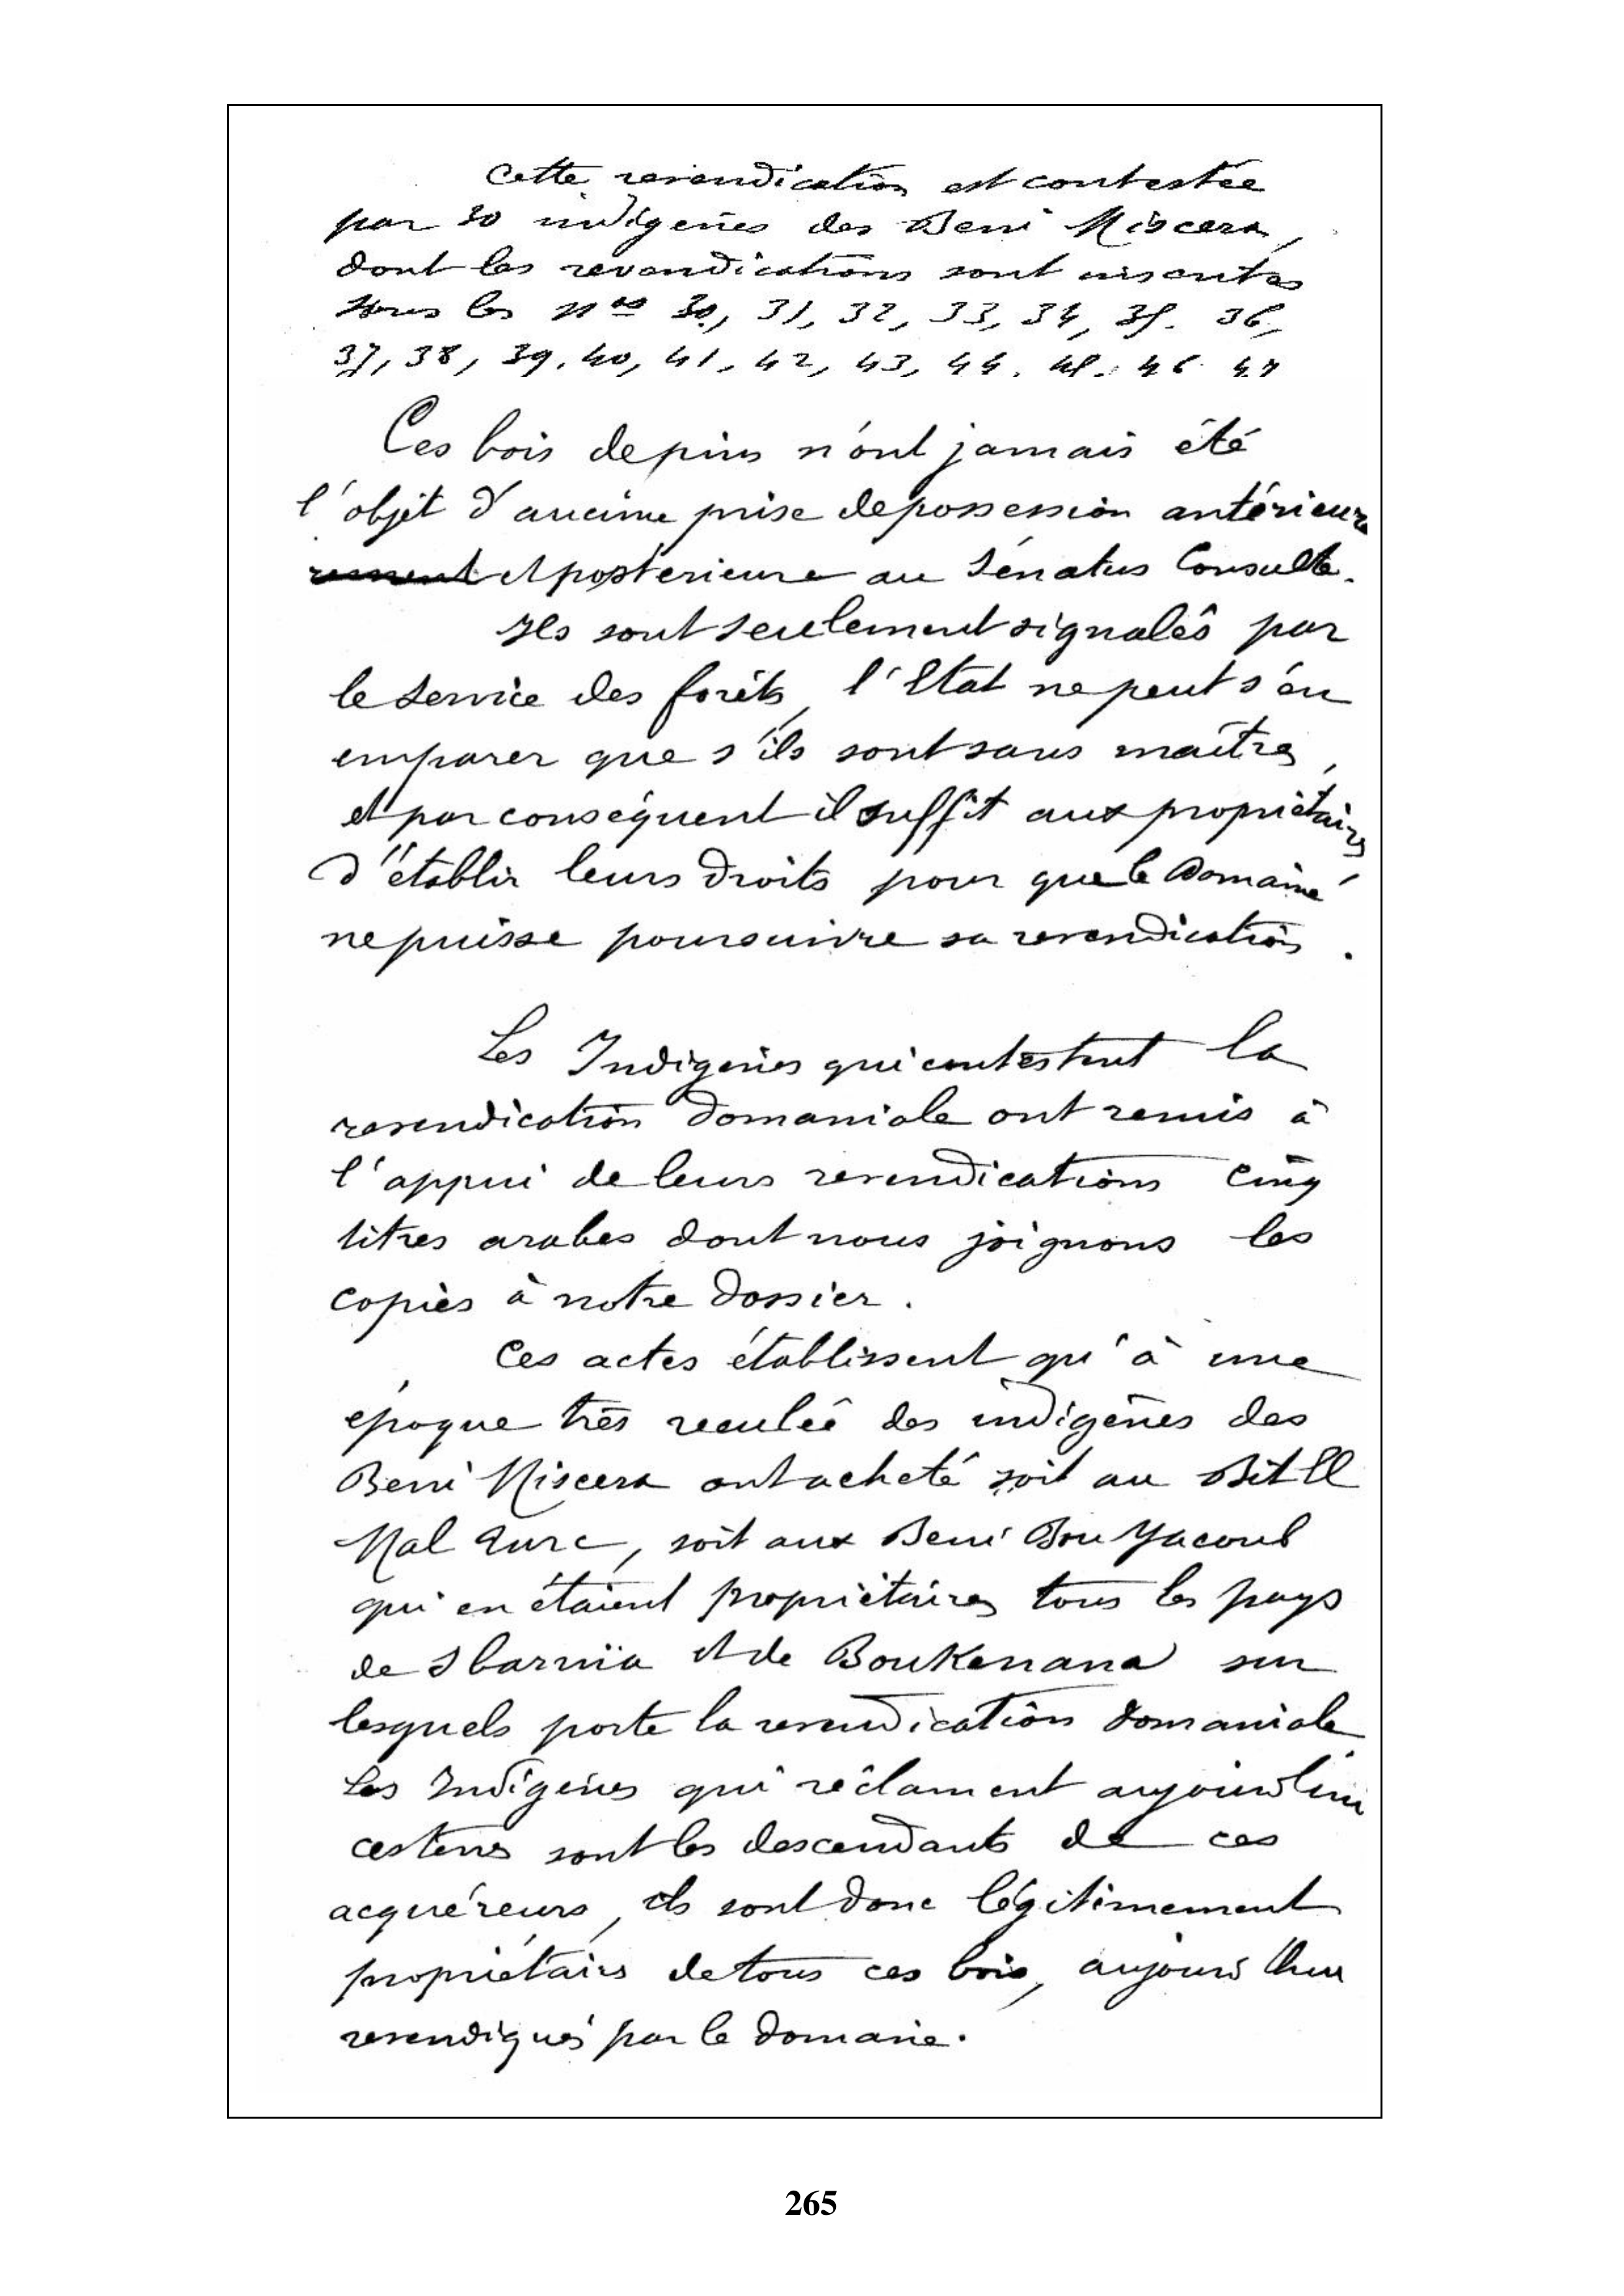 Cette revendication est contestée
par 30 indigènes des Beni Miscera,
dont les revendications sont inscrites
sous les nos 30, 31, 32, 33, 34, 35. 36,
37, 38, 39. 40, 41, 42, 43, 44. 45. 46 47
Ces bois de pins n'ont jamais été
l'objet d'aucune prise de possession antérieure
et postérieure au Sénatus Consulte.
Ils sont seulement signalés par
le service des forêts, l'Etat ne peut s'en
emparer que s'ils sont sans maîtres,
et par conséquent il suffit aux propriétaires
d'établir leurs droits pour que le Domaine
ne puisse poursuivre sa revendication.
Les Indigènes qui contestent la
revendication domaniale ont remis à
l'appui de leurs revendications cinq
titres arabes dont nous joignons les
copies à notre dossier.
Ces actes établissent qu'à une
époque très reculée des indigènes des
Beni Miscera ont acheté soit au Bit El
Mal Turc, soit aux Beni Bou Yacoub
qui en étaient propriétaires tous les pays
de et de Boukenana sur
lesquels porte la revendication domaniale.
Les Indigènes qui réclament aujourd'hui
ces terres sont les descendants de ces
acquéreurs, ils sont donc légitimement
propriétaires de tous ces bois, aujourd'hui
revendiqués par le domaine.
265